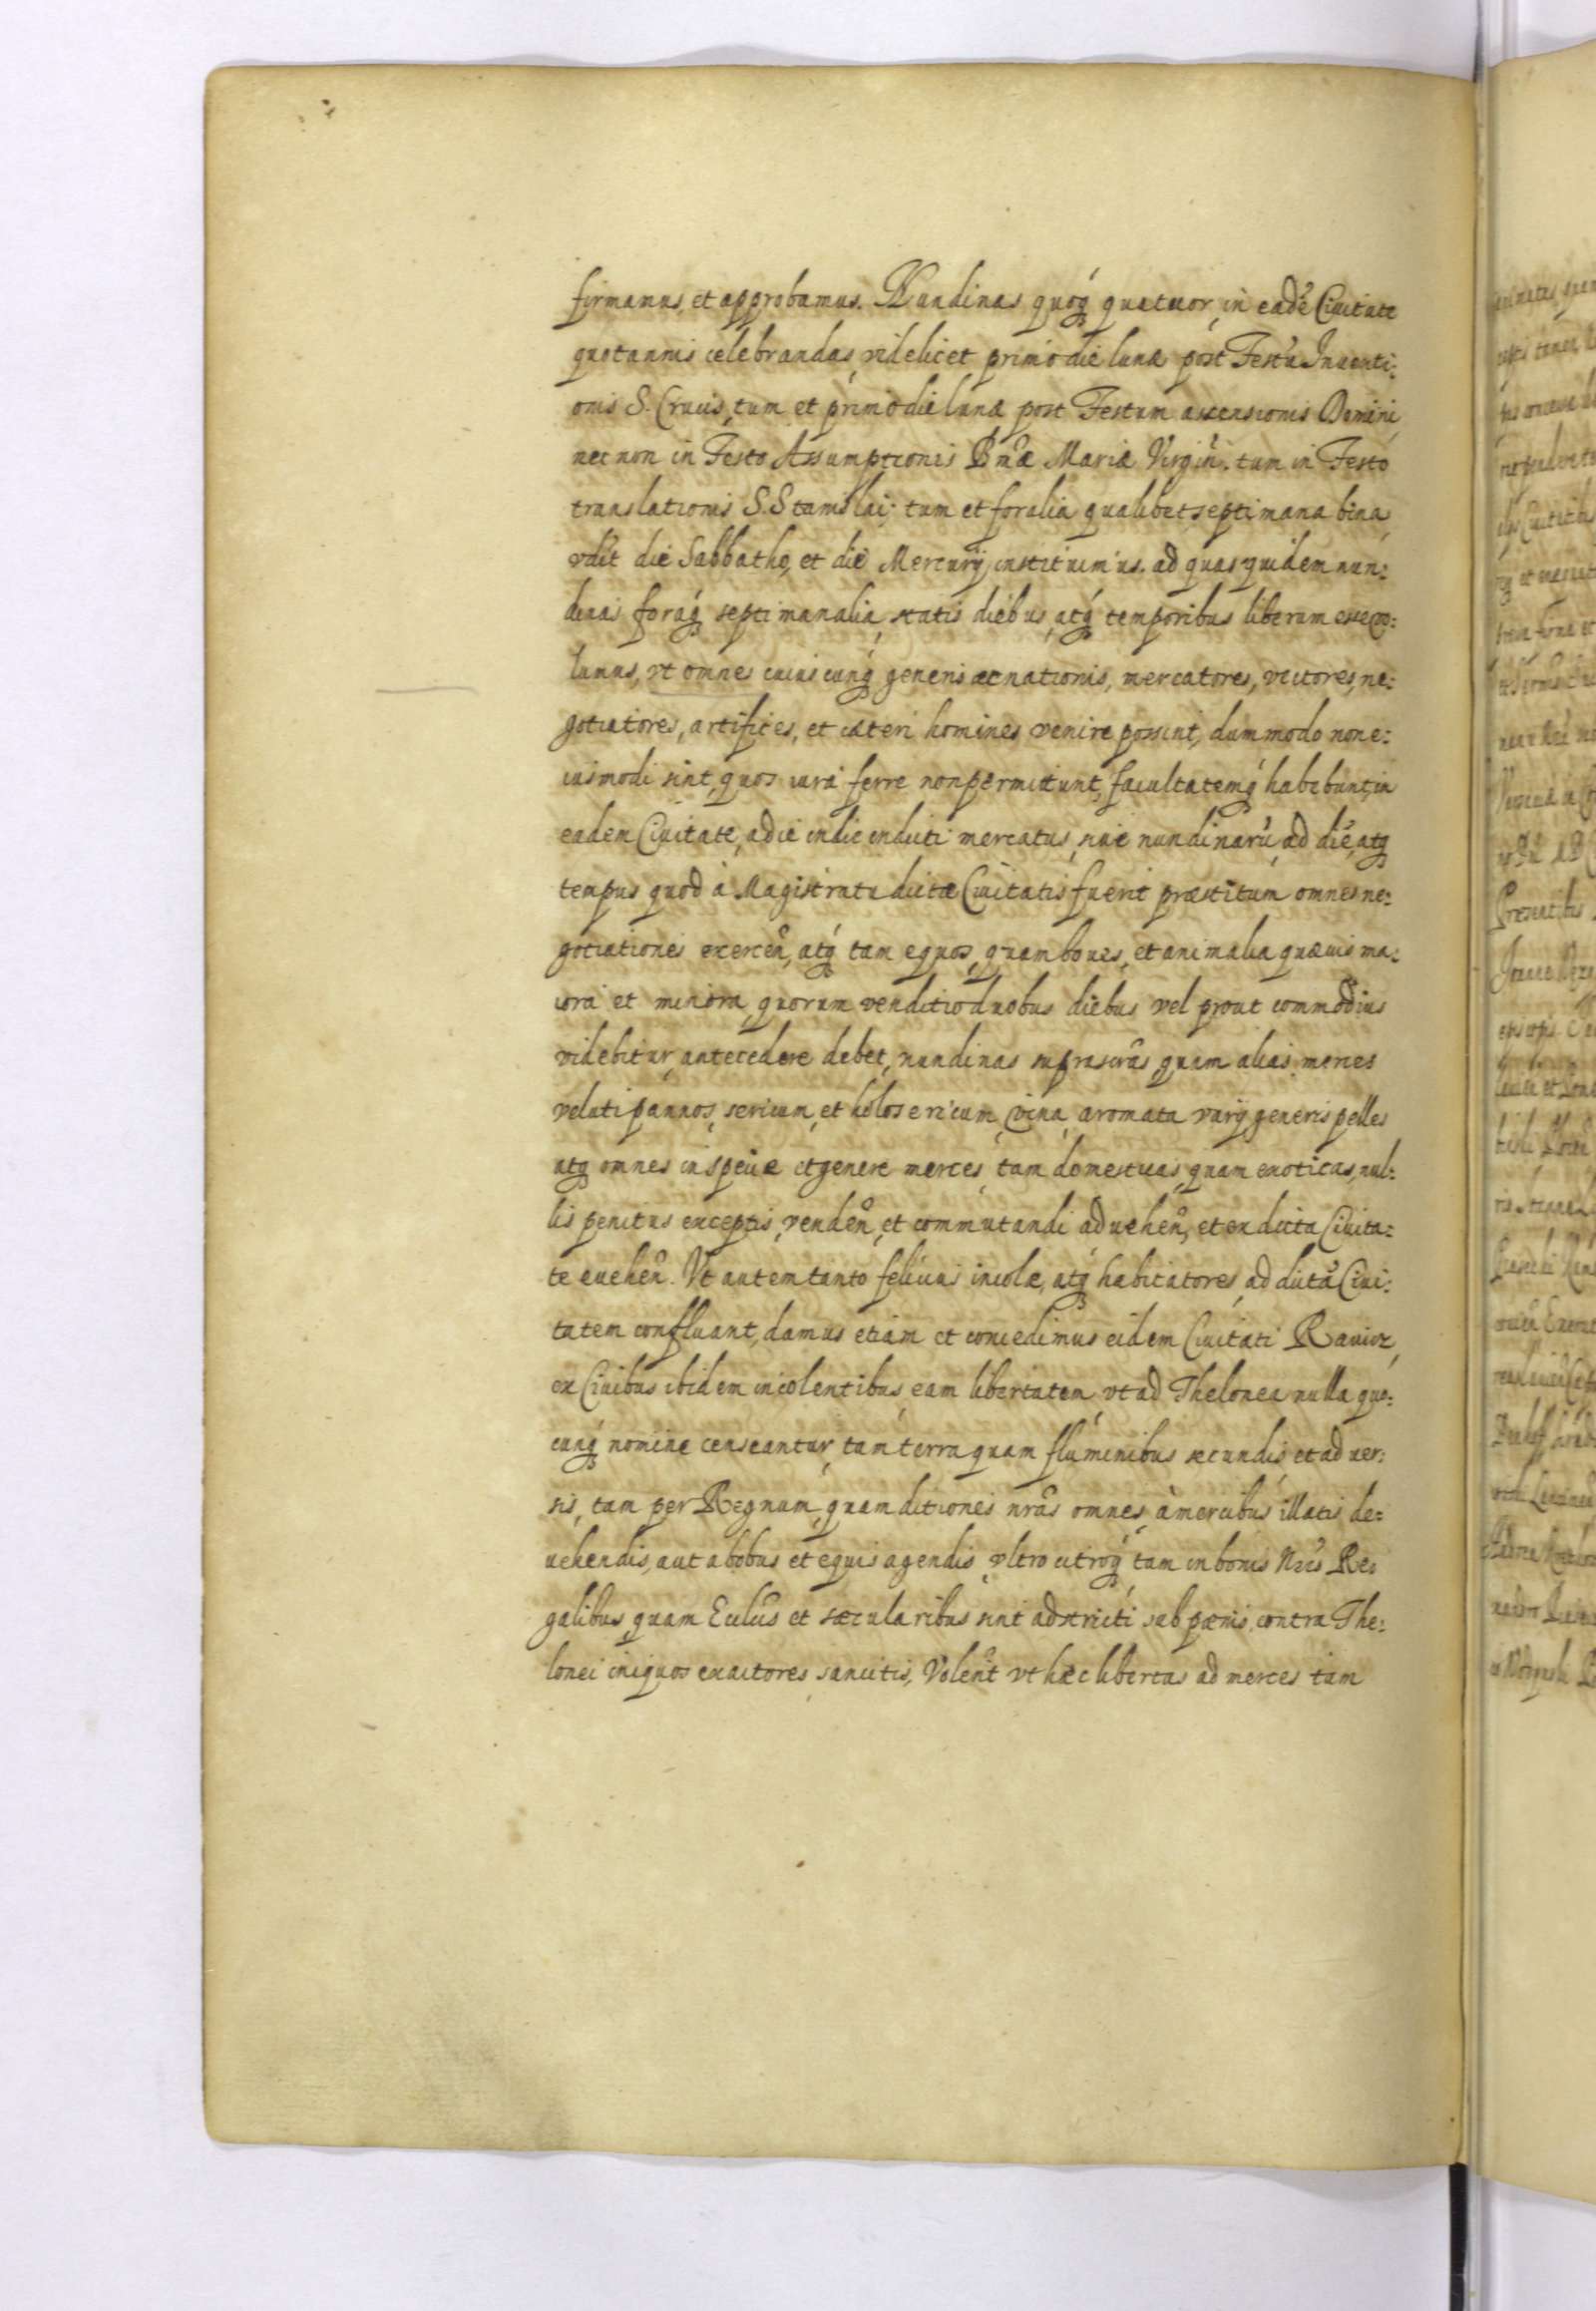 firmamus, et approbamus. Nundinas quoq́ quatuor, in eadē Ciuitate
quotannis celebrandas, videlicet primo die lunæ post Festū Inuenti:
onis S. Crucis, tum et primo die lunæ post Festum ascensionis Domini
nec non in Festo Assumptionis Bñæ Mariæ Virgiñ. tum in Festo
translationis S. Stanislai; tum et foralia qualibet septimana bina,
vdēt die Sabbatho, et die Mercurÿ instituimus. ad quas quidem nun:
dinas foraq́ septimanalia, statis diebus, atq́ temporibus liberum esse vo:
lumus, vt omnes cuiuscunq́ generis ac nationis, mercatores, vectores, ne:
gotiatores, artifices, et cæteri homines venire possint, dummodo non e:
iusmodi sint, quos iura ferre non permittunt, facultatemq́ habebunt, in
eadem Ciuitate, a die indie inducti mercatus, siue nundinarū, ad diē, atq
tempus quod à Magistratu dictæ Ciuitatis fuerit præstitum omnes ne:
gotiationes exerceñ, atq́ tam equos, quam boues, et animalia quæuis ma:
iora et minora, quorum venditio duobus diebus vel prout commodius
videbitur, antecedere debet, nundinas suprascrãs, quam alias merces
veluti pannos, sericum, et holosericum, vina, aromata varÿ generis pelles
atq omnes in specie et genere merces, tam domesticas, quam exoticas, nul:
lis penitus exceptis, vendeñ, et commutandi adueheñ, et ex dicta Ciuita:
te eueheñ. Vt autem tanto felicius incolæ, atq́ habitatores, ad dictã Ciui:
tatem confluant, damus etiam et concedimus eidem Ciuitati Rauicz,
ex Ciuibus ibidem incolentibus, eam libertatem, vt ad Thelonea nulla quo:
cunq́ nomine censeantur, tam terra quam fluminibus secundis, et aduer:
sis, tam per Regnum, quam ditiones nrãs omnes, à mercibus illatis de:
uehendis, aut a bobus et equis agendis, vltro citroq́ tam in bonis Nris Re:
galibus, quam Ecclcis et sæcularibus sint adstricti sub pœnis, contra The:
lonei iniquos exactores sancitis, Voleñt vt hæc libertas ad merces tam